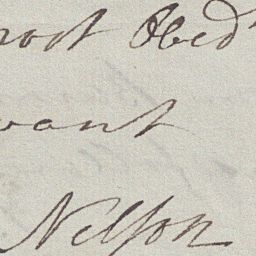 most Obed^t
vant
Nelson